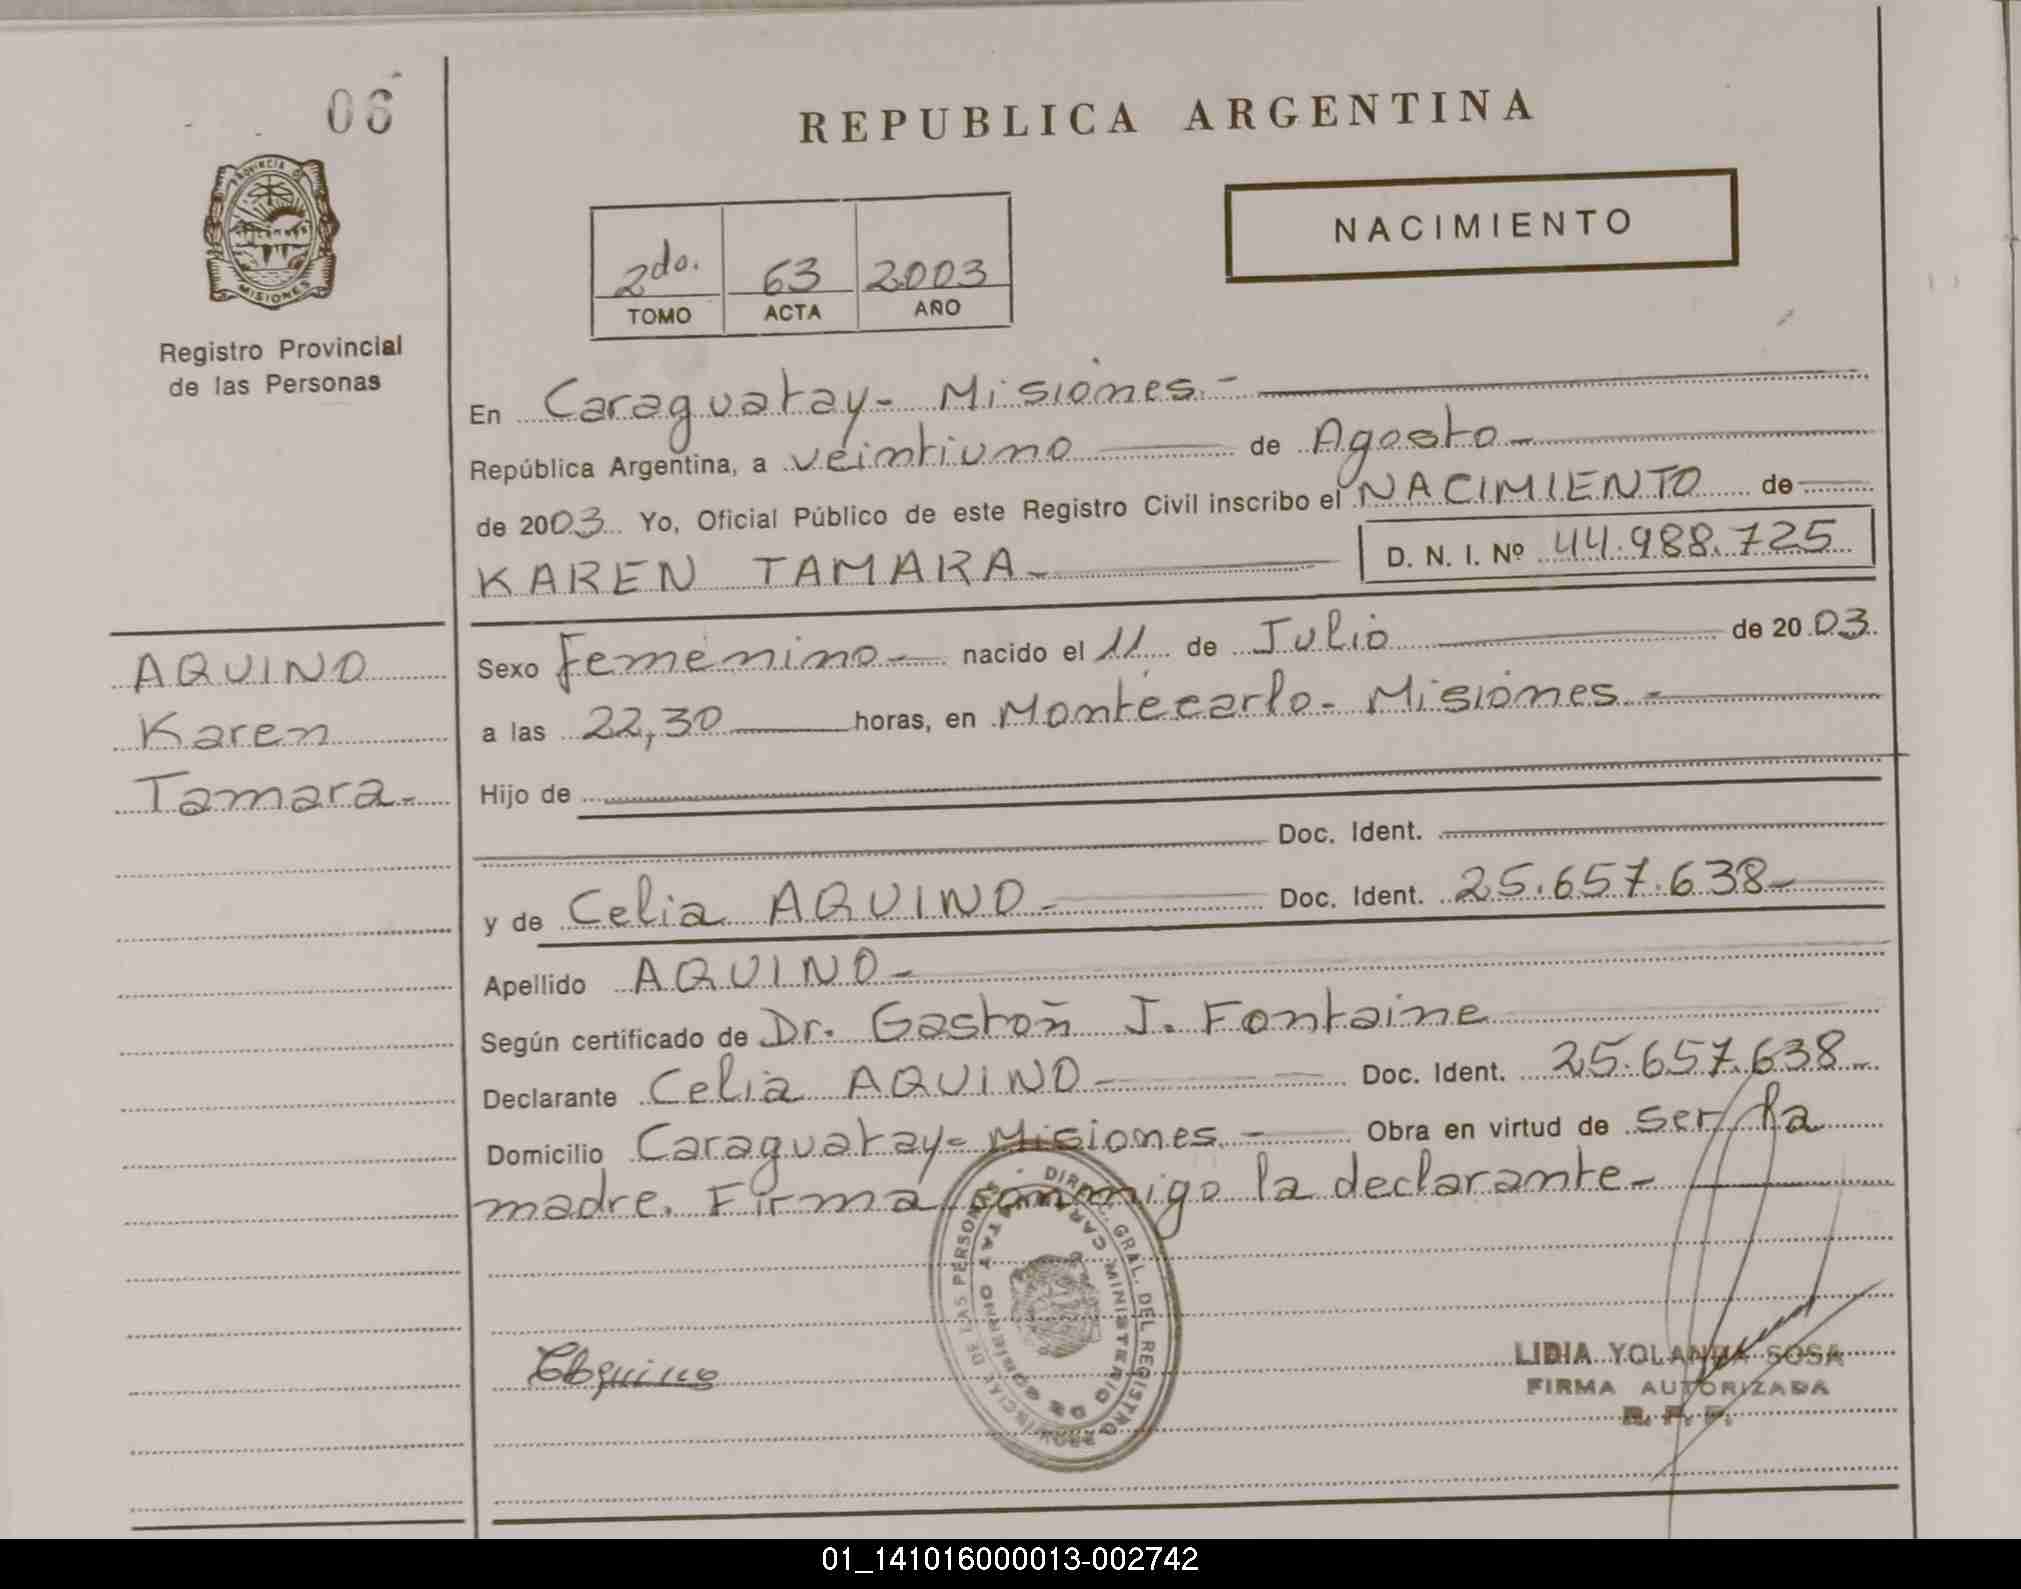 06
REPUBLICA ARGENTINA
PROVINCIA D
MISIONES
NACIMIENTO
2do. 63 2003
TOMO ACTA AÑO
Registro Provincial
de las Personas
En Caraguatay - Misiones -
República Argentina, a veintiuno de Agosto -
de 2003 Yo, Oficial Público de este Registro Civil inscribo el NACIMIENTO de
KAREN TAMARA - D. N. I. Nº 44.988.725
AQUINO
Karen
Tamara -
Sexo femenino - nacido el 11 de Julio de 2003
a las 22,30 horas, en Montecarlo - Misiones -
Hijo de
Doc. Ident.
y de Celia AQUINO - Doc. Ident. 25.657.638 -
Apellido AQUINO -
Según certificado de Dr. Gastón J. Fontaine
Declarante Celia AQUINO - Doc. Ident. 25.657.638 -
Domicilio Caraguatay - Misiones - Obra en virtud de ser la
madre. Firma conmigo la declarante -
DIREC. GRAL. DEL REGISTRO PROVINCIAL DE LAS PERSONAS
MINISTERIO DE GOBIERNO
LIDIA YOLANDA SOSA
FIRMA AUTORIZADA
R. P. P.
01_141016000013-002742